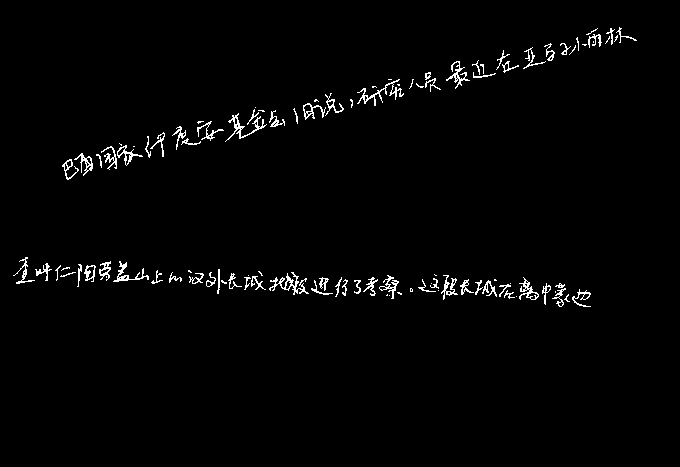 巴西国家印度安基金会1日说，研究人员最近在亚马孙雨林
查呼仁陶勞盖山上的汉外长城地段进行了考察。这段长城在离中蒙边